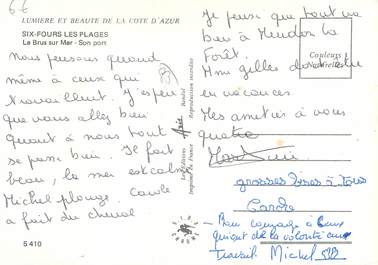 6€
LUMIERE ET BEAUTE DE LA COTE D'AZUR
SIX-FOURS LES PLAGES
Le Brus sur Mer - Son port
Nous pensons quand
même à ceux qui
travaillent. J'espère
que vous allez bien
quant à nous tout
se passe bien. Il fait
beau, la mer est calme
Michel plonge. Carole
a fait du cheval
5 410
Les Editions
Bandol
Imprimé en France
Reproduction interdite
Je pense que tout va
bien à Meudon la
Forêt.
Mme Gilles doit être
en vacances.
Mes amitiés à vous
quatre
Couleurs
Naturelles
grosses bises à tous
Carole
Bon courage à ceux
qui ont de la volonté au
travail Michel